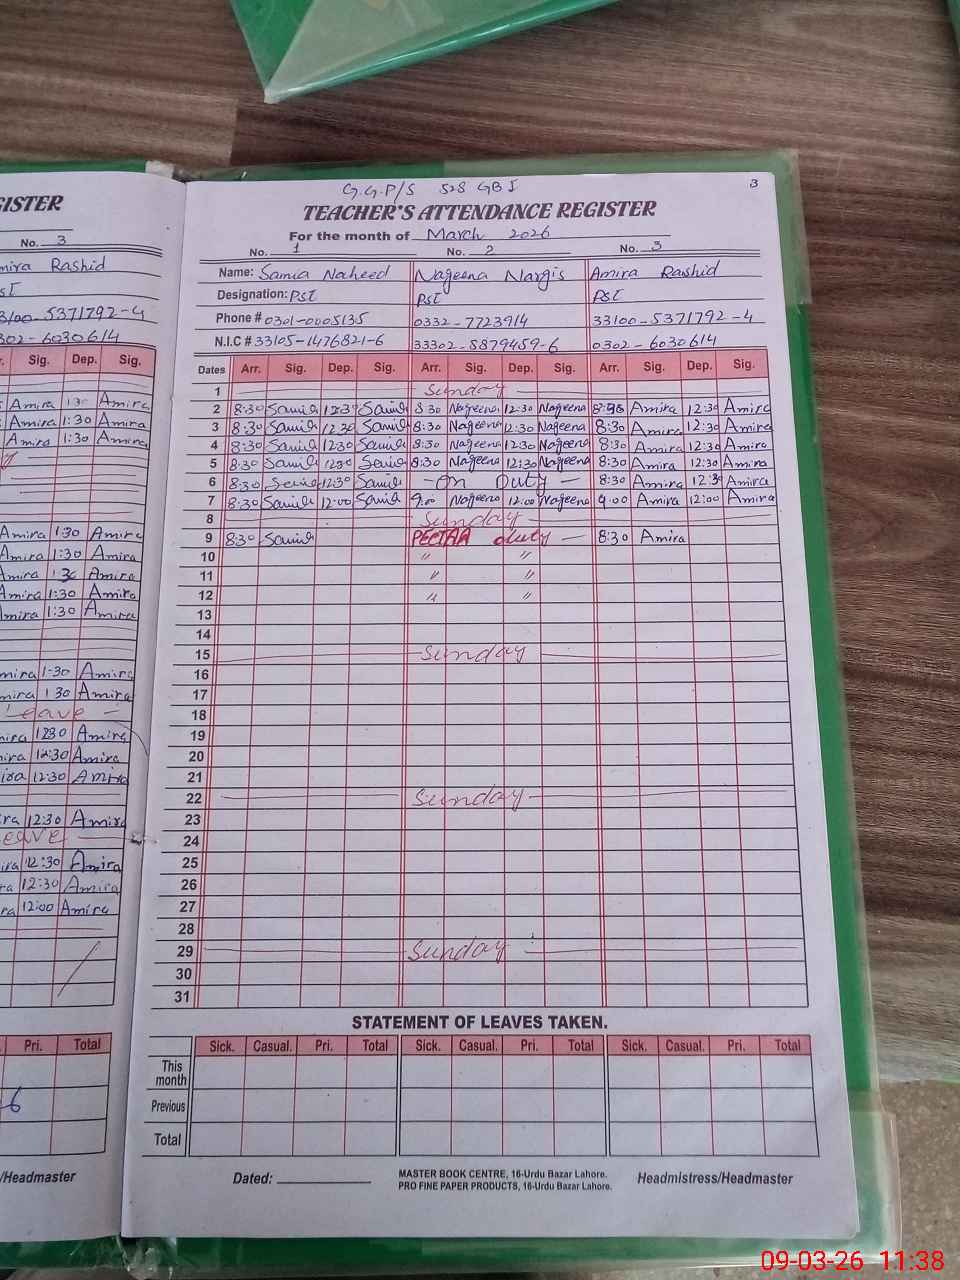 G.G.P/S 528 GB I
3
TEACHER'S ATTENDANCE REGISTER
For the month of March 2026
No. 1 No. 2 No. 3
Name: Samia Naheed Nageena Nargis Amira Rashid
Designation: PST PST PST
Phone # 0301-0005135 0332-7723914 33100-5371792-4
N.I.C # 33105-1476821-6 33302-5879459-6 0302-6030614
Dates Arr. Sig. Dep. Sig. Arr. Sig. Dep. Sig. Arr. Sig. Dep. Sig.
1 Sunday
2 8:30 Samia 12:30 Samia 8:30 Nageena 12:30 Nageena Amira 12:30 Amira
3 8:30 Samia 12:30 Samia 8:30 Nageena 12:30 Nageena 8:30 Amira 12:30 Amira
4 8:30 Samia 12:30 Samia 8:30 Nageena 12:30 Nageena 8:30 Amira 12:30 Amira
5 8:30 Samia 12:30 Samia 8:30 Nageena 12:30 Nageena 8:30 Amira 12:30 Amira
6 8:30 Samia 12:30 Samia - On Duty - 8:30 Amira 12:30 Amira
7 8:30 Samia 12:00 Samia 9:00 Nageena 12:00 Nageena 9:00 Amira 12:00 Amira
8 Sunday
9 8:30 Samia PECTAA duty - 8:30 Amira
10 " "
11 " "
12 " "
13
14
15 Sunday
16
17
18
19
20
21
22 Sunday
23
24
25
26
27
28
29 Sunday
30
31
STATEMENT OF LEAVES TAKEN.
Sick. Casual. Pri. Total Sick. Casual. Pri. Total Sick. Casual. Pri. Total
This month
Previous
Total
Dated:
MASTER BOOK CENTRE, 16-Urdu Bazar Lahore.
PRO FINE PAPER PRODUCTS, 16-Urdu Bazar Lahore.
Headmistress/Headmaster
No. 3
Rashid
Sig. Dep. Sig.
Amira 1:30 Amira
Amira 1:30 Amira
Amira 1:30 Amira
Amira 1:30 Amira
Amira 1:30 Amira
Amira 1:30 Amira
Amira 1:30 Amira
Amira 1:30 Amira
1:30 Amira
1:30 Amira
Leave -
12:30 Amira
12:30 Amira
12:30 Amira
12:30 Amira
12:30 Amira
12:30 Amira
12:00 Amira
Pri. Total
6
/Headmaster
09-03-26 11:38